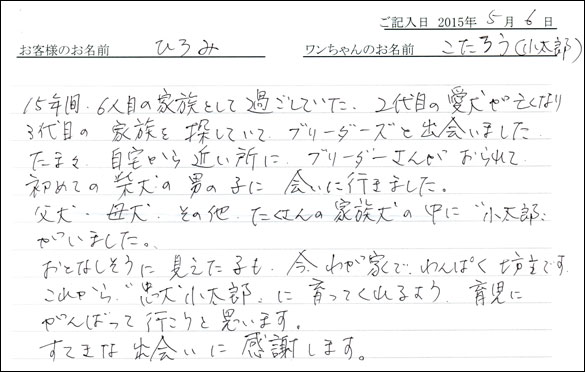 ご記入日 2015年 5月 6日
お客様のお名前 ひろみ ワンちゃんのお名前 こたろう(小太郎)
15年間、6人目の家族として過ごしていた、2代目の愛犬が亡くなり
3代目の 家族を 探していて、ブリーダーズと出会いました
たまたま 自宅から近い所に、ブリーダーさんが おられて
初めての 柴犬の男の子に 会いに行きました。
父犬・母犬、その他、たくさんの家族犬の中に“小太郎”
がいました。
おとなしそうに 見えた子も、今、わが家で、わんぱく坊主です
これから“忠犬小太郎”に 育ってくれるよう、育児に
がんばって行こうと思います。
すてきな出会いに 感謝します。